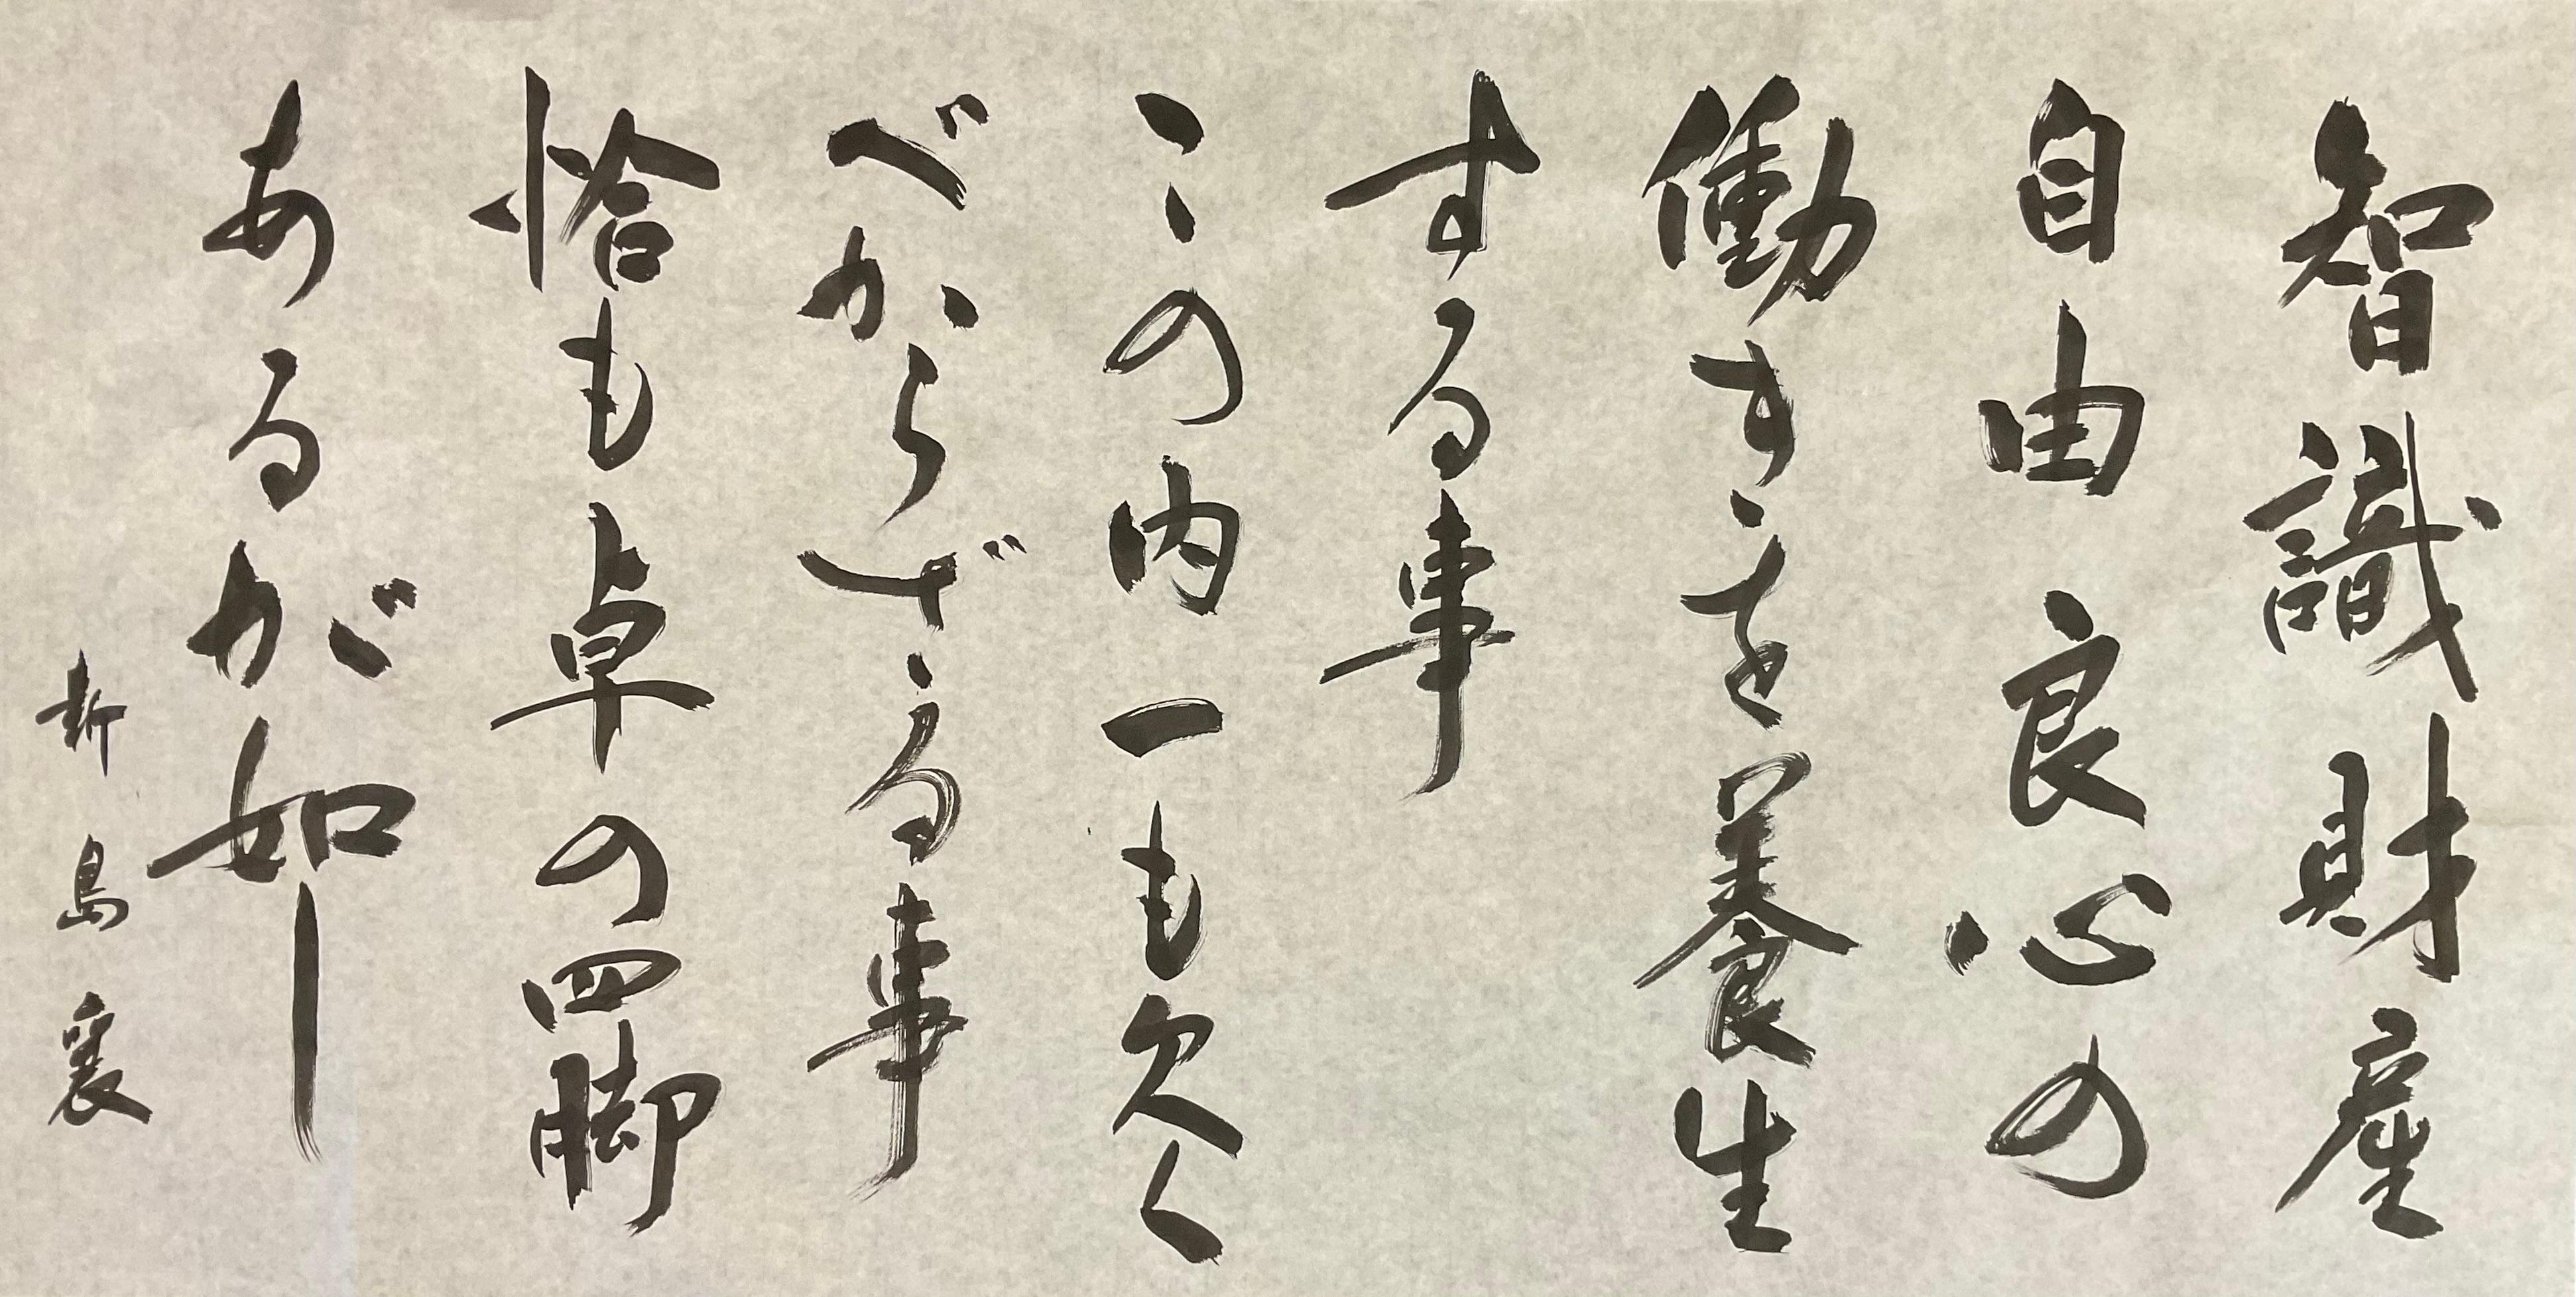 智識財産
自由良心の
働きを養生
する事
この内一も欠く
べからざる事
恰も卓の四脚
あるが如し
新島襄